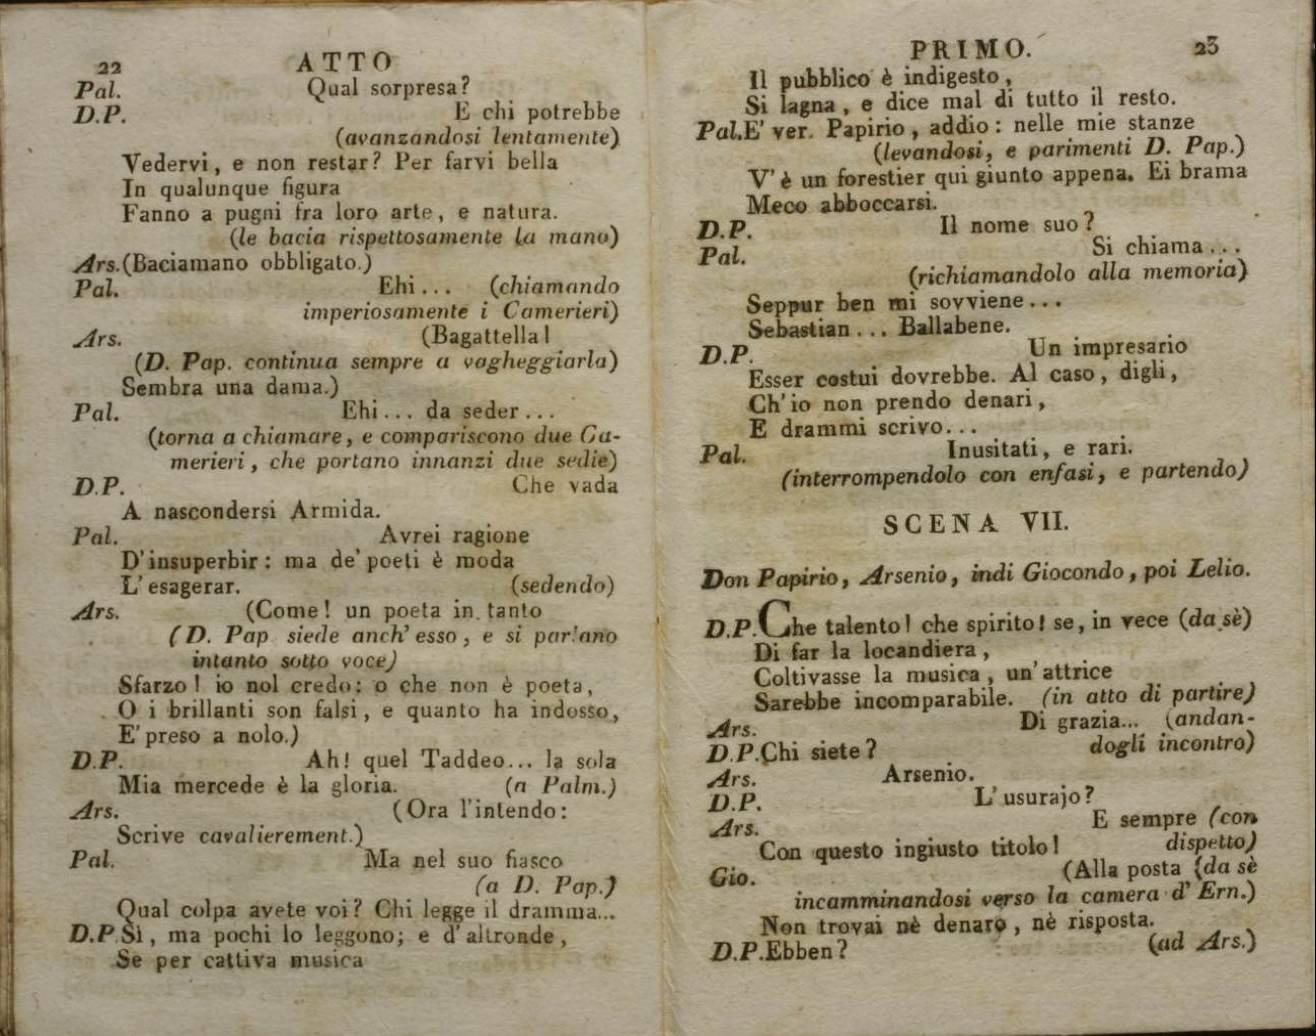 22 ATTO
Pal. Qual sorpresa?
D.P. E chi potrebbe
(avanzandosi lentamente)
Vedervi, e non restar? Per farvi bella
In qualunque figura
Fanno a pugni fra loro arte, e natura.
(le bacia rispettosamente la mano)
Ars.(Baciamano obbligato.)
Pal. Ehi... (chiamando
imperiosamente i Camerieri)
Ars. (Bagattella!
(D. Pap. continua sempre a vagheggiarla)
Sembra una dama.)
Pal. Ehi... da seder...
(torna a chiamare, e compariscono due Ca-
merieri, che portano innanzi due sedie)
D.P. Che vada
A nascondersi Armida.
Pal. Avrei ragione
D'insuperbir: ma de' poeti è moda
L'esagerar. (sedendo)
Ars. (Come! un poeta in tanto
(D. Pap siede anch' esso, e si parlano
intanto sotto voce)
Sfarzo! io nol credo: o che non è poeta,
O i brillanti son falsi, e quanto ha indosso,
E' preso a nolo.)
D.P. Ah! quel Taddeo... la sola
Mia mercede è la gloria. (a Palm.)
Ars. (Ora l'intendo:
Scrive cavalierement.)
Pal. Ma nel suo fiasco
(a D. Pap.)
Qual colpa avete voi? Chi legge il dramma...
D.P.Sì, ma pochi lo leggono; e d'altronde,
Se per cattiva musica
PRIMO. 23
Il pubblico è indigesto,
Si lagna, e dice mal di tutto il resto.
Pal.E' ver. Papirio, addio: nelle mie stanze
(levandosi, e parimenti D. Pap.)
V'è un forestier qui giunto appena. Ei brama
Meco abboccarsi.
D.P. Il nome suo?
Pal. Si chiama...
(richiamandolo alla memoria)
Seppur ben mi sovviene...
Sebastian... Ballabene.
D.P. Un impresario
Esser costui dovrebbe. Al caso, digli,
Ch'io non prendo denari,
E drammi scrivo...
Pal. Inusitati, e rari.
(interrompendolo con enfasi, e partendo)
SCENA VII.
Don Papirio, Arsenio, indi Giocondo, poi Lelio.
D.P.Che talento! che spirito! se, in vece (da sè)
Di far la locandiera,
Coltivasse la musica, un'attrice
Sarebbe incomparabile. (in atto di partire)
Ars. Di grazia... (andan-
D.P.Chi siete? dogli incontro)
Ars. Arsenio.
D.P. L'usurajo?
Ars. E sempre (con
Con questo ingiusto titolo! dispetto)
Gio. (Alla posta (da sè
incamminandosi verso la camera d' Ern.)
Non trovai nè denaro, nè risposta.
D.P.Ebben? (ad Ars.)